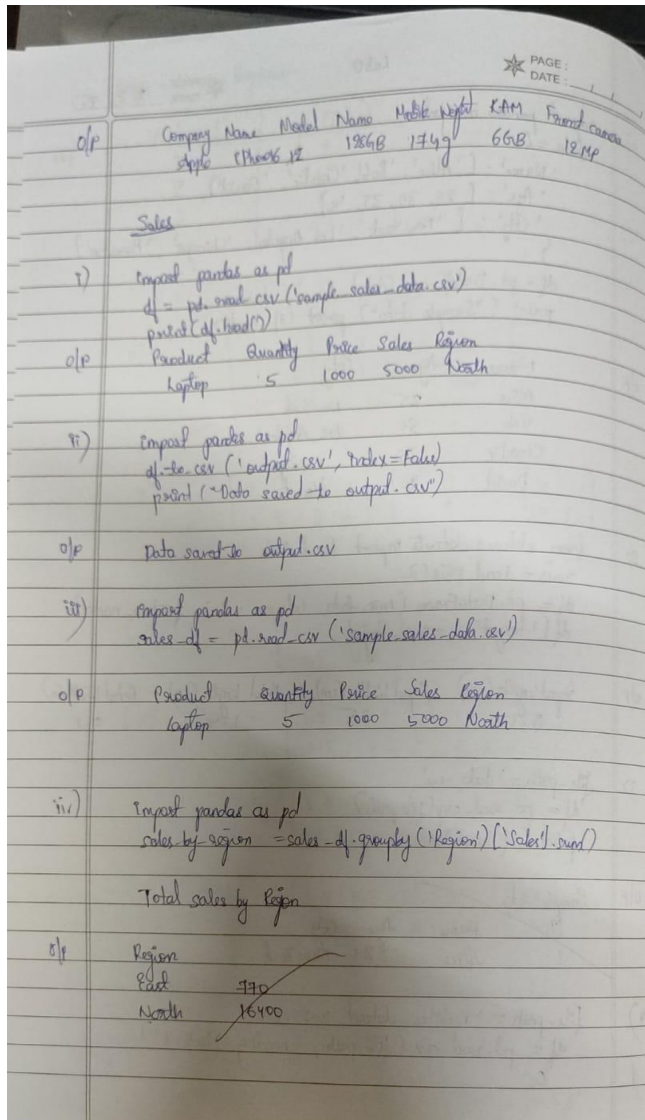 PAGE:
DATE:
o/p Company Name Model Name Mobile Weight RAM Front camera
Apple iPhone 12 128GB 174g 6GB 12MP
Sales
i) import pandas as pd
df = pd.read_csv('sample_sales_data.csv')
print(df.head())
o/p Product Quantity Price Sales Region
Laptop 5 1000 5000 North
ii) import pandas as pd
df.to_csv('output.csv', index=False)
print("Data saved to output.csv")
o/p Data saved to output.csv
iii) import pandas as pd
sales_df = pd.read_csv('sample_sales_data.csv')
o/p Product Quantity Price Sales Region
Laptop 5 1000 5000 North
iv) import pandas as pd
sales_by_region = sales_df.groupby('Region')['Sales'].sum()
Total sales by Region
o/p Region
East 770
North 16400